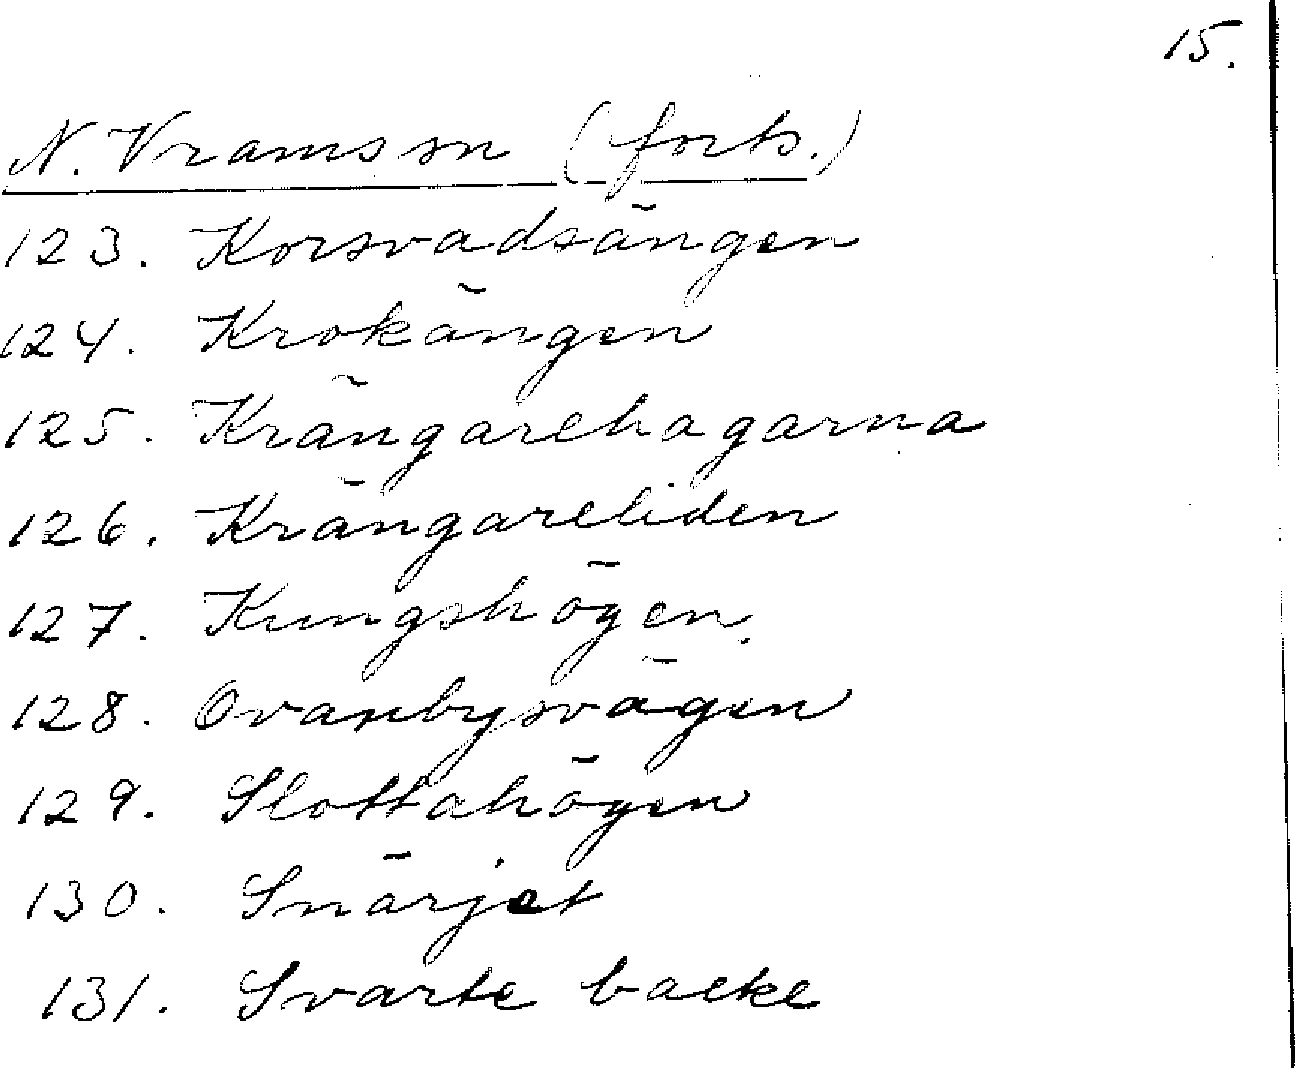 15.
N. Vrams sn (forts.)
123. Korsvadsängen
124. Krokängen
125. Krängarehagarna
126. Krängareliden
127. Kungshögen.
128. Ovanbysvägen
129. Slottahögen
130. Snärjet
131. Svarte backe